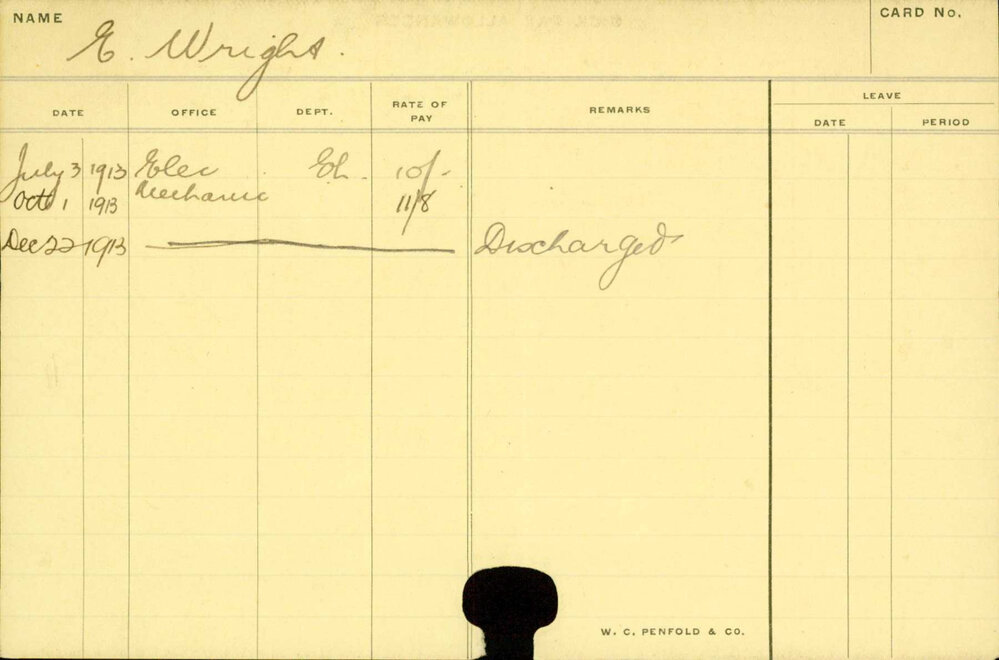 NAME E. Wright. CARD No.
LEAVE
DATE OFFICE DEPT. RATE OF PAY REMARKS DATE PERIOD
July 3 1913 Elec El. 10/-
Oct 1 1913 Mechanic 11/8
Dec 22 1913 Discharged
W. C. PENFOLD & CO.